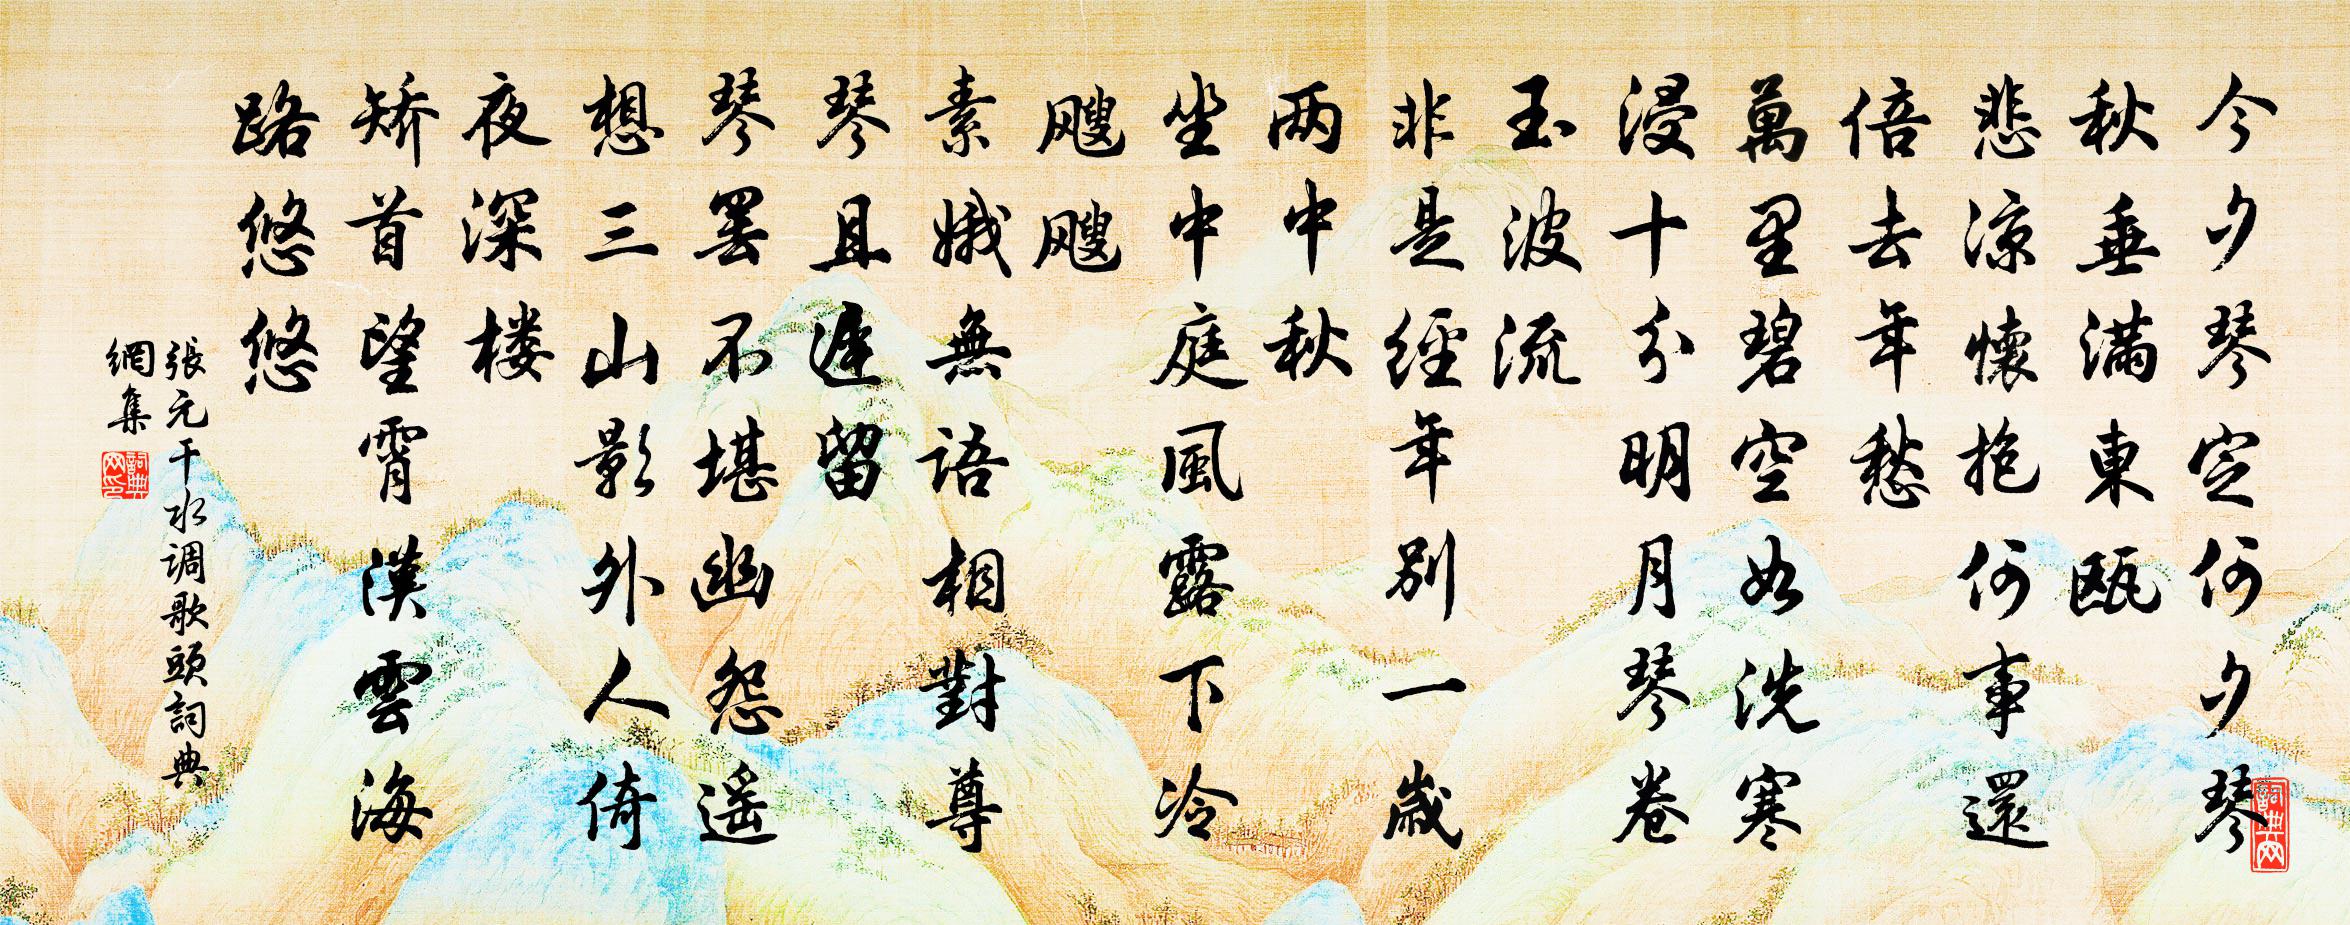 今夕琴定何夕琴
秋垂满東瓯
悲涼懷抱何事還
倍去年愁
萬里碧空如洗寒
浸十分明月琴卷
玉波流
非是經年别一歲
两中秋
坐中庭風露下冷
飕飕
素娥無語相對尊
琴且遲留
琴罢不堪幽怨遥
想三山影外人倚
夜深楼
矫首望霄漢雲海
路悠悠
張元干水调歌頭詞典
網集
詞典网
詞典网印